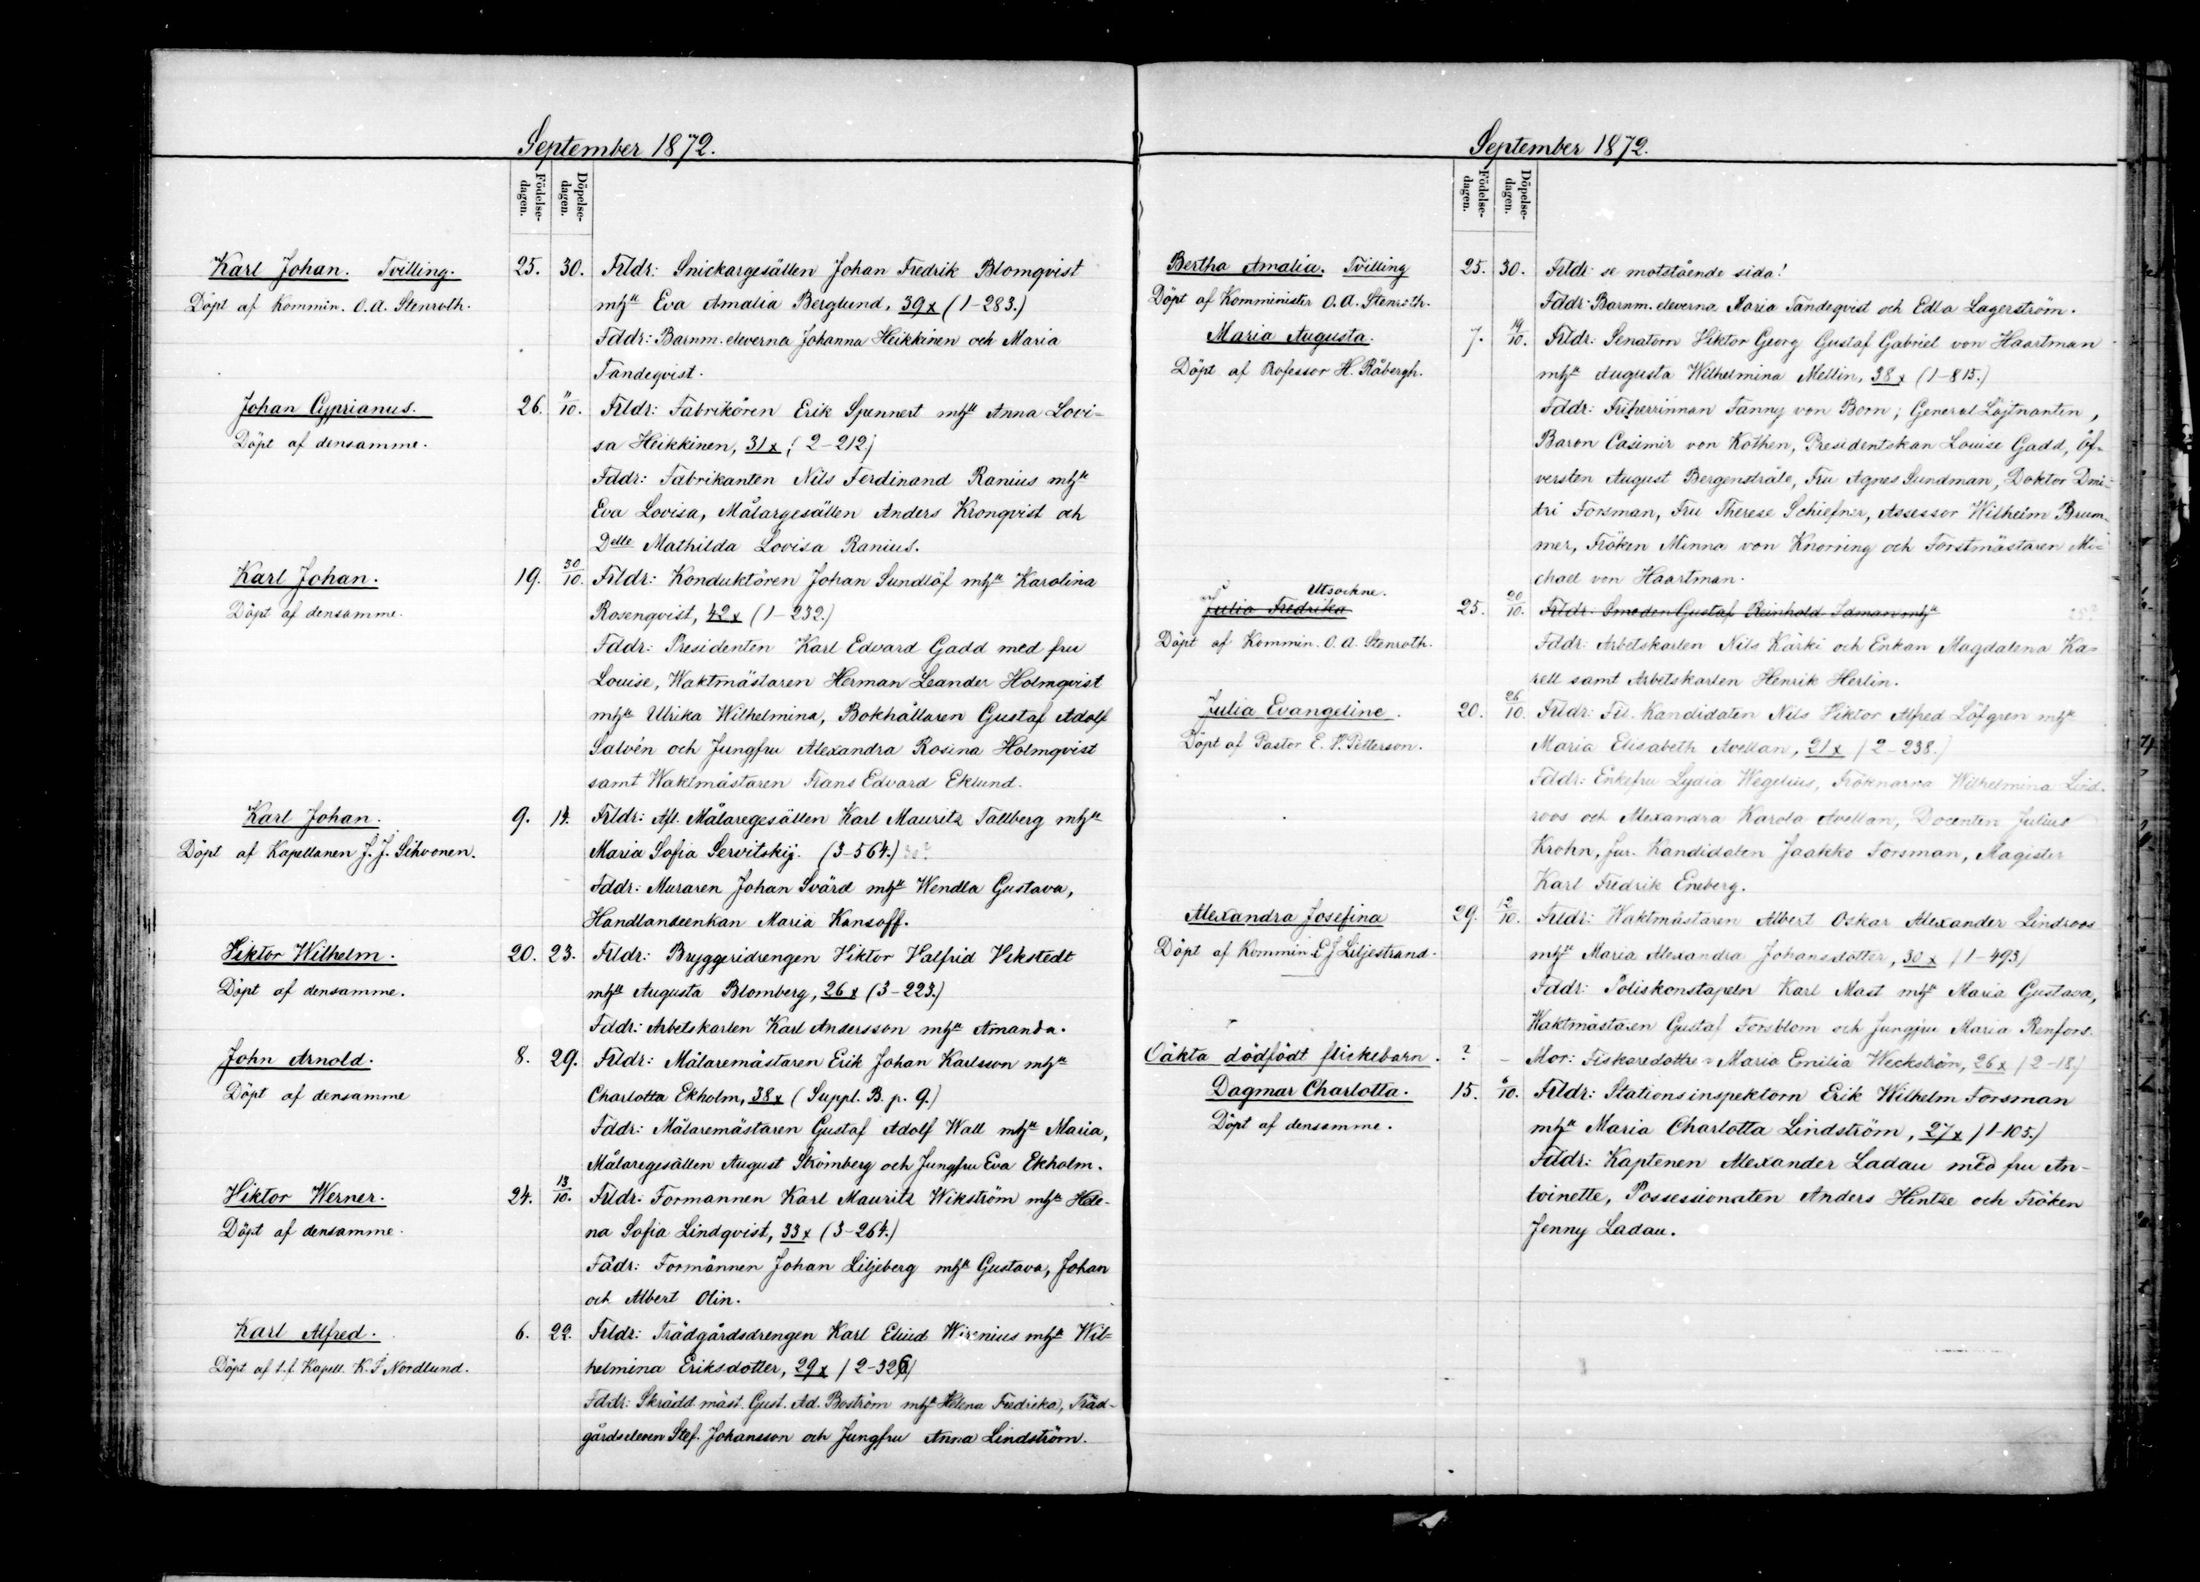 September 1872.
Födelse-
dagen.
Döpelse-
dagen.
Karl Johan. Tvilling. 25. 30. Frldr: Snickargesällen Johan Fredrik Blomqvist
Döpt af Kommin. O. A. Stenroth. mhu Eva Amalia Berglund, 39 x (1-283.)
Fddr: Barnm. eleverna Johanna Heikkinen och Maria
Tandeqvist.
Johan Cyprianus. 26. 11/10. Frldr: Fabrikören Erik Spennert mhu Anna Lovi-
Döpt af densamme. sa Heikkinen, 31 x (2-212)
Fddr: Fabrikanten Nils Ferdinand Ranius mhu
Eva Lovisa, Målargesällen Anders Kronqvist och
Delle Mathilda Lovisa Ranius.
Karl Johan. 19. 30/10. Frldr: Konduktören Johan Sundlöf mhu Karolina
Döpt af densamme. Rosenqvist, 42 x (1-232.)
Fddr: Presidenten Karl Edvard Gadd med fru
Louise, Waktmästaren Herman Leander Holmqvist
mhu Ulrika Wilhelmina, Bokhållaren Gustaf Adolf
Salvén och Jungfru Alexandra Rosina Holmqvist
samt Waktmästaren Frans Edvard Eklund.
Karl Johan. 9. 14. Frldr: Afl. Målaregesällen Karl Mauritz Tallberg mhu
Döpt af Kapellanen J. J. Sihvonen. Maria Sofia Servitskij. (3-564.)
Fddr: Muraren Johan Svärd mhu Wendla Gustava,
Handlandeenkan Maria Kansoff.
Viktor Wilhelm. 20. 23. Frldr: Bryggeridrengen Viktor Valfrid Vikstedt
Döpt af densamme. mhu Augusta Blomberg, 26 x (3-223.)
Fddr: Arbetskarlen Karl Andersson mhu Amanda.
John Arnold. 8. 29. Frldr: Målaremästaren Erik Johan Karlsson mhu
Döpt af densamme Charlotta Ekholm, 38 x (Suppl. B. p. 9.)
Fddr: Målaremästaren Gustaf Adolf Wall mhu Maria,
Målaregesällen August Strömberg och Jungfru Eva Ekholm.
Viktor Werner. 24. 13/10. Frldr: Formannen Karl Mauritz Wikström mhu Hele-
Döpt af densamme. na Sofia Lindqvist, 33 x (3-264.)
Fddr: Formännen Johan Liljeberg mhu Gustava, Johan
och Albert Olin.
Karl Alfred. 6. 22. Frldr: Trädgårdsdrengen Karl Eliud Wirenius mhu Wil-
Döpt af t.f. Kapell. K. J. Nordlund. helmina Eriksdotter, 29 x (2-326)
Fddr: Skrädd.mäst. Gust. Ad. Boström mhu Helena Fredrika, Träd-
gårdseleven Stef. Johansson och Jungfru Anna Lindström.
September 1872.
Födelse-
dagen.
Döpelse-
dagen.
Bertha Amalia. Tvilling 25. 30. Frldr: se motstående sida!
Döpt af Komminister O. A. Stenroth. Fddr: Barnm. eleverna Maria Tandeqvist och Edla Lagerström.
Maria Augusta. 7. 14/10. Frldr: Senatorn Viktor Georg Gustaf Gabriel von Haartman
Döpt af Professor H. Råbergh. mhu Augusta Wilhelmina Mellin, 38 x (1-815.)
Fddr: Friherrinnan Fanny von Born, General Löjtnanten,
Baron Casimir von Kothen, Presidentskan Louise Gadd, Öf-
versten August Bergenstråle, Fru Agnes Sundman, Doktor Dmi-
tri Forsman, Fru Therese Schiefner, Assessor Wilhelm Brum-
mer, Fröken Minna von Knorring och Forstmästaren Mi-
chael von Haartman.
Utsockne.
Julia Fredrika 25. 20/10. Frldr: Smeden Gustaf Reinhold Idman mhu
Döpt af Kommin. O. A. Stenroth. Fddr: Arbetskarlen Nils Kärki och Enkan Magdalena Ka-
rell samt Arbetskarlen Henrik Herlin.
Julia Evangeline. 20. 26/10. Frldr: Fil. Kandidaten Nils Viktor Alfred Löfgren mhu
Döpt af Pastor E. V. Petterson. Maria Elisabeth Avellan, 21 x (2-238.)
Fddr: Enkefru Lydia Wegelius, Fröknarna Wilhelmina Lind-
roos och Alexandra Karola Avellan, Docenten Julius
Krohn, Jur. Kandidaten Jaakko Forsman, Magister
Karl Fredrik Eneberg.
Alexandra Josefina 29. 12/10. Frldr: Waktmästaren Albert Oskar Alexander Lindroos
Döpt af Kommin. E J Liljestrand. mhu Maria Alexandra Johansdotter, 30 x (1-493)
Fddr: Poliskonstapeln Karl Mast mhu Maria Gustava,
Waktmästaren Gustaf Forsblom och Jungfru Maria Renfors.
Oäkta dödfödt flickebarn. ? - Mor: Fiskaredottren Maria Emilia Weckström, 26 x (2-18)
Dagmar Charlotta. 15. 6/10. Frldr: Stationsinspektorn Erik Wilhelm Forsman
Döpt af densamme. mhu Maria Charlotta Lindström, 27 x (1-105.)
Fddr: Kaptenen Alexander Ladau med fru An-
toinette, Possessionaten Anders Hintze och Fröken
Jenny Ladau.